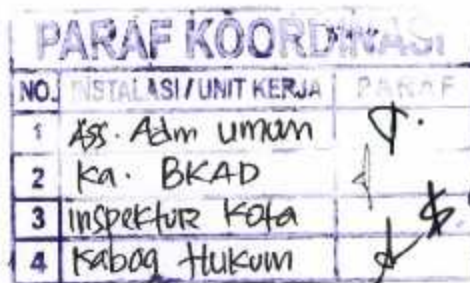 PARAF KOORDINASI
NO. INSTALASI / UNIT KERJA PARAF
1 Ass. Adm umum
2 Ka. BKAD
3 Inspektur Kota
4 Kabag Hukum